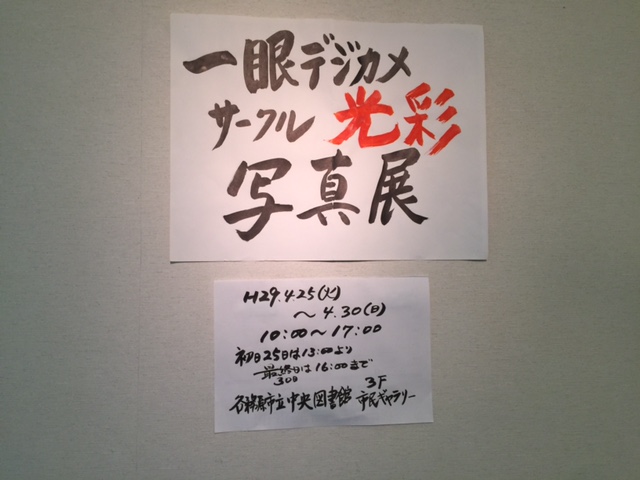 一眼デジカメ
サークル 光彩
写真展
H29.4.25(火)
～4.30(日)
10:00～17:00
初日25日は13:00より
最終日は16:00まで
30日
各務原市立中央図書館 3F 市民ギャラリー